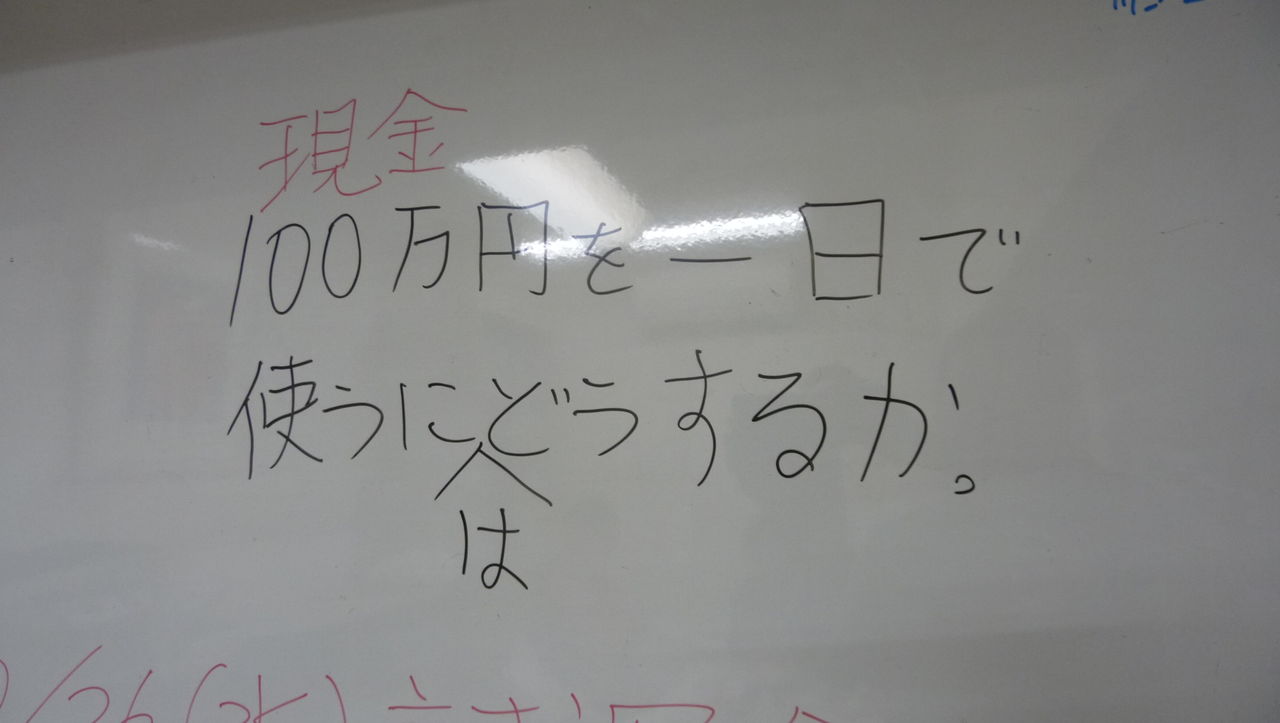 現金
100万円を一日で
使うにどうするか。
は
/26(水)